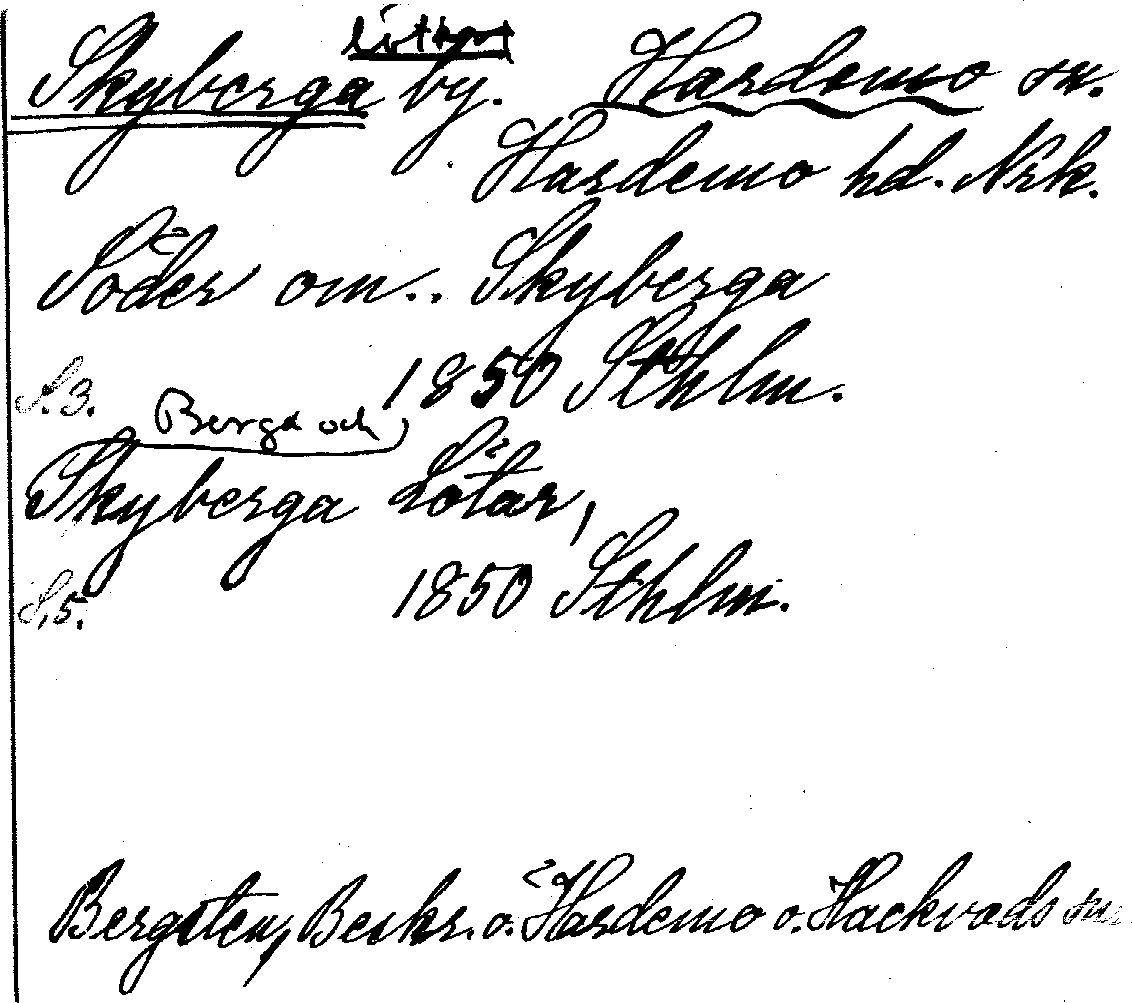 Skyberga by. Hardemo sn.
Hardemo hd. Nrk.
Söder om.. Skyberga
S.3. 1850 Sthlm.
Berga och
Skyberga Lötar,
S.5. 1850 Sthlm.
Bergsten, Beskr. ö. Hardemo o. Hackvads snr